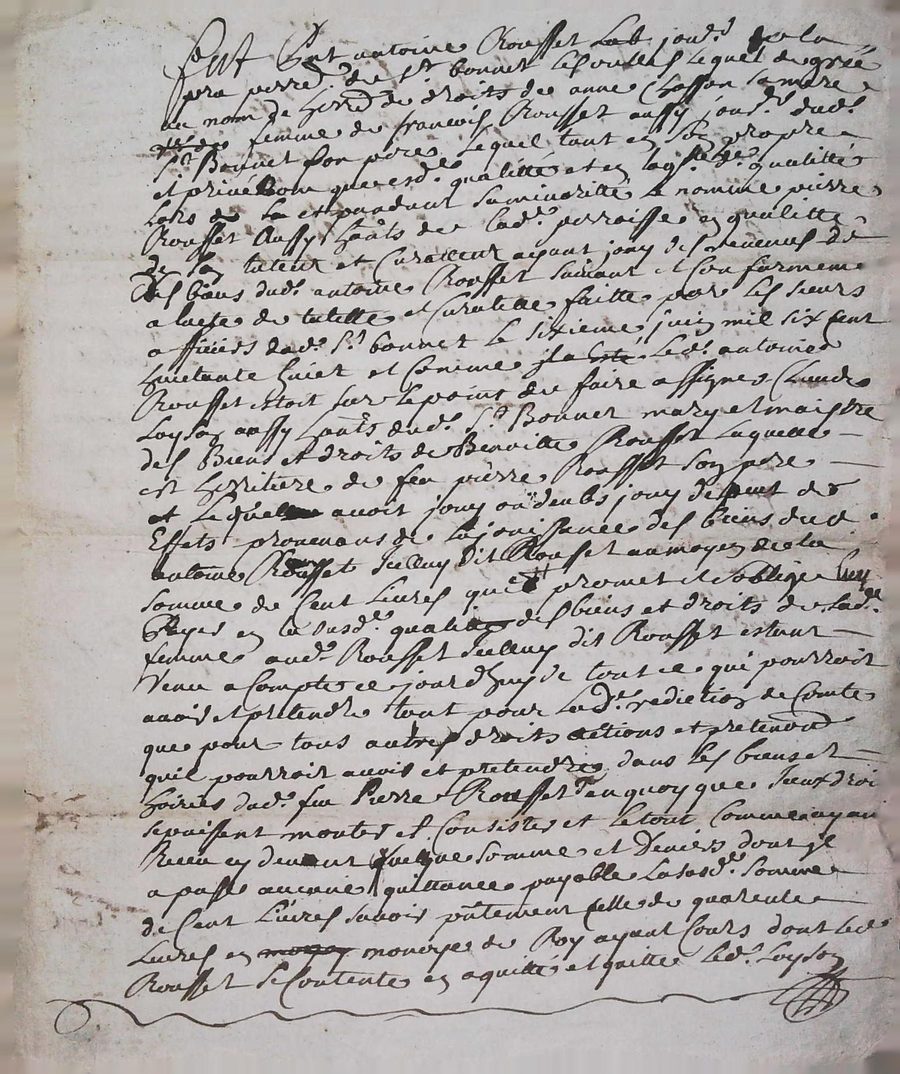 fut Pnt antoine Rousset Lab. jourd. de la
de St bonnet les oulles Lequel de gree
au nom de herred. de droits de anne Chasson sa mere
femme de francois Rousset aussy jourd. dud.
St Bonnet son pere Lequel tant en son propre
et privé nom que esd. qualitté et en lad. qualitté
Lors de la et pendant sa minoritte Le nomme pierre
Rousset Aussy hantt de lad. parroisse en qualitte
de son tuteur et Curatteur ayant jouy des revenus de
des biens dud. antoine Rousset suivant et Conformeme
a lacte de tutelle et Curatelle faitte par les sieurs
officiers dud. St bonnet le sixieme juin mil six cent
huictante huict et Comme il a Esté Led. antoine
Rousset estoit sur le point de faire assigner Claude
Loyson aussy hantt dud. St Bonnet mary et maistre
des Biens et droits de Benoitte Rousset Laquelle
est herritiere de feu pierre Rousset son pere
et Lequel avoit jouy ou deub jouy de
Effets provenans de la jouissance des biens dud.
antoine Rousset Icelluy dit Rousset au moyen de la
somme de Cent Livres que promet et s'oblige luy
Payer en la susd. qualitte des biens et droits de Lad.
femme aud. Rousset Icelluy dit Rousset estant
Venu a Compte ce jourdhuy de tout ce qui pourroit
avoir et pretendre tant pour Lad. rediction de Comte
que pour tous autres droits actions et pretentions
quil pourroit avoir et pretendre dans les biens et
hoiries dud. feu Pierre Rousset en quoy que Iceux droi
se puissent monter et Consister et le tout Comme ayant
Receu cy devant quelque somme et Deniers dont Il
a passé aucune quittance payable La susd. Somme
de Cent Livres savoir pntement Celle de quarente
Livres en monoye de Roy ayant Cours dont led.
Rousset se Contente en a quitté et quitte Led. Loyson